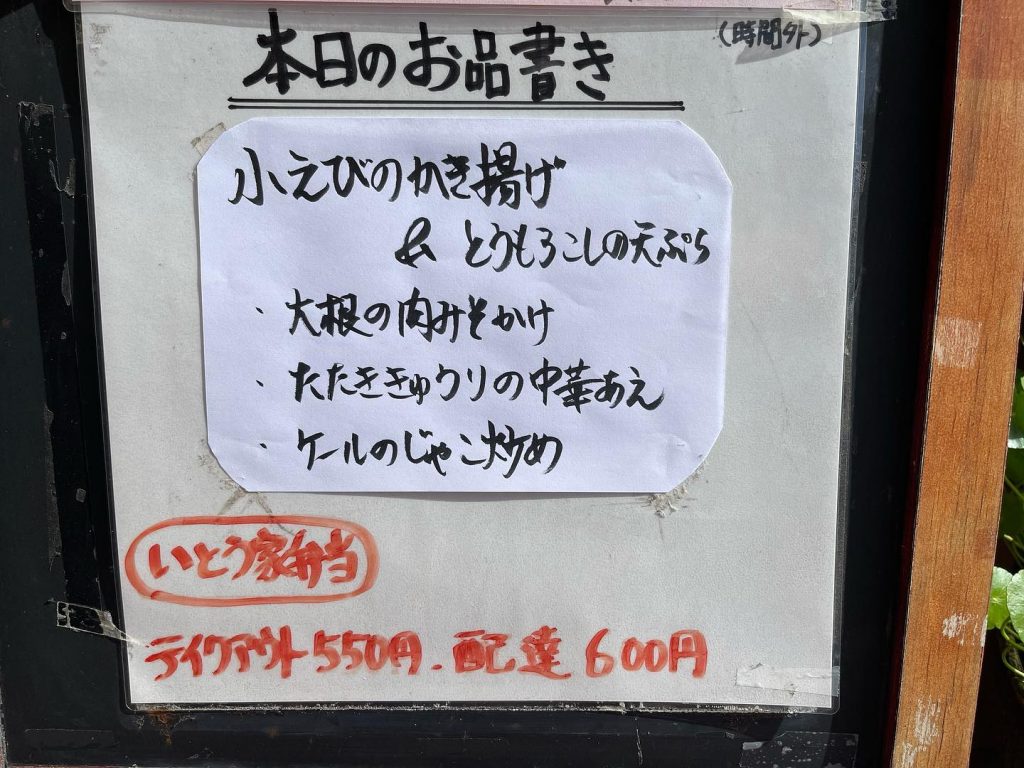 (時間外)
本日のお品書き
小えびのかき揚げ
& とうもろこしの天ぷら
・大根の肉みそかけ
・たたききゅうりの中華あえ
・ケールのじゃこ炒め
いとう家弁当
テイクアウト550円.配達600円